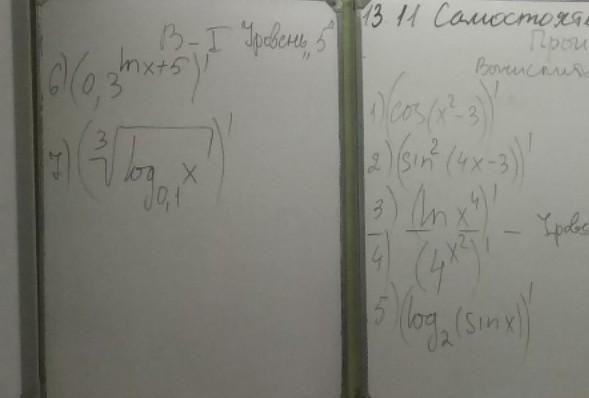 В-I Уровень „5"
6) (0,3^{lnx+5})'
7) (∛log_{0,1} x)'
13 11 Самостоять
Прои
Вычислить
1) (cos(x²-3))'
2) (sin²(4x-3))'
3) (ln x⁴)'
4) (4^{x²})' - Уров
5) (log₂(sinx))'